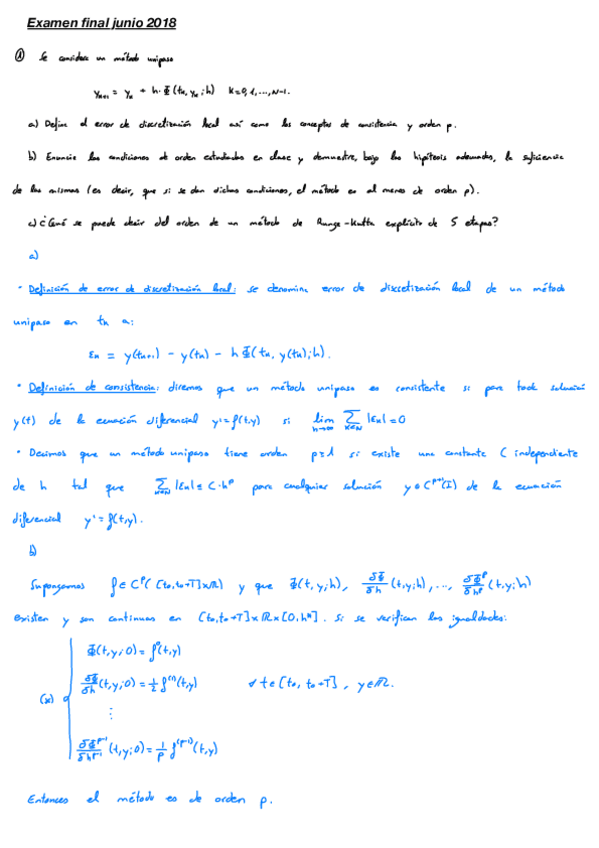 Examen final junio 2018
① Se considera un método unipaso
yₖ₊₁ = yₖ + h·Φ(tₖ, yₖ; h)   k=0,1,...,N-1.
a) Define el error de discretización local así como los conceptos de consistencia y orden p.
b) Enuncie las condiciones de orden estudiadas en clase y demuestre, bajo las hipótesis adecuadas, la suficiencia
de las mismas (es decir, que si se dan dichas condiciones, el método es al menos de orden p).
c) ¿Qué se puede decir del orden de un método de Runge-Kutta explícito de 5 etapas?
a)
· Definición de error de discretización local: se denomina error de discretización local de un método
unipaso en tₖ a:
εₖ = y(tₖ₊₁) - y(tₖ) - hΦ(tₖ, y(tₖ); h).
· Definición de consistencia: diremos que un método unipaso es consistente si para toda solución
y(t) de la ecuación diferencial y'=f(t,y) si lim Σ |εₖ| = 0
· Decimos que un método unipaso tiene orden p≥1 si existe una constante C independiente
de h tal que Σ |εₖ| ≤ C·hᵖ para cualquier solución y∈Cᵖ⁺¹(I) de la ecuación
diferencial y'=f(t,y).
b)
Supongamos f∈Cᵖ([t₀,t₀+T]×ℝ) y que Φ(t,y;h), δΦ/δh (t,y;h), ..., δΦᵖ/δhᵖ (t,y;h)
existen y son continuas en [t₀,t₀+T]×ℝ×[0,h*]. Si se verifican las igualdades:
Φ(t,y;0) = f(t,y)
(*) δΦ/δh (t,y;0) = 1/2 f⁽¹⁾(t,y)   ∀ t∈[t₀, t₀+T], y∈ℝ.
⋮
δΦᵖ⁻¹/δhᵖ⁻¹ (t,y;0) = 1/p f⁽ᵖ⁻¹⁾(t,y)
Entonces el método es de orden p.